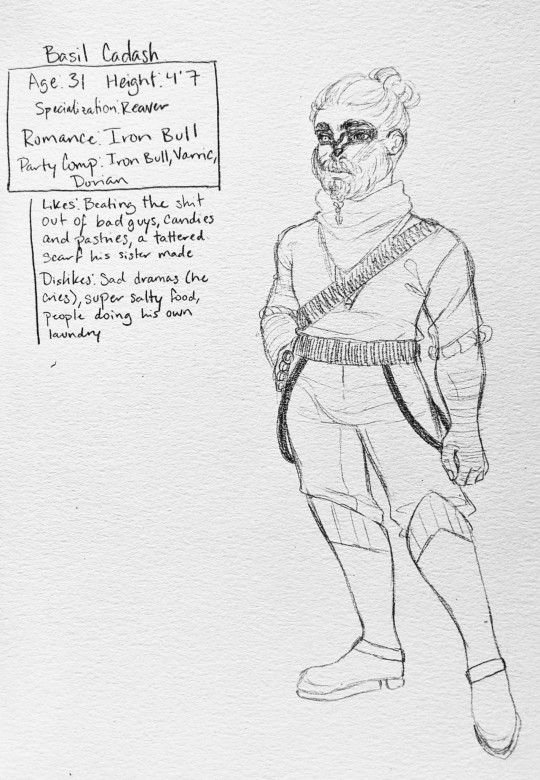 Basil Cadash
Age: 31 Height: 4'7
Specialization: Reaver
Romance: Iron Bull
Party Comp: Iron Bull, Varric,
Dorian
Likes: Beating the shit
out of bad guys, candies
and pastries, a tattered
scarf his sister made
Dislikes: Sad dramas (he
cries), super salty food,
people doing his own
laundry